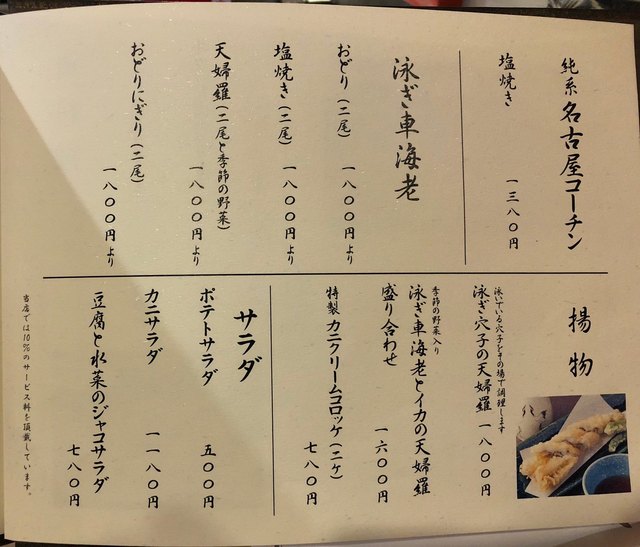 純系 名古屋コーチン
塩焼き
一三八〇円
泳ぎ車海老
おどり(二尾)
一八〇〇円より
塩焼き(二尾)
一八〇〇円より
天婦羅(二尾と季節の野菜)
一八〇〇円より
おどりにぎり(二尾)
一八〇〇円より
揚物
泳いでいる穴子をその場で調理します
泳ぎ穴子の天婦羅 一八〇〇円
季節の野菜入り
泳ぎ車海老とイカの天婦羅
盛り合わせ
一六〇〇円
特製 カニクリームコロッケ(二ケ)
七八〇円
サラダ
ポテトサラダ
五〇〇円
カニサラダ
一一八〇円
豆腐と水菜のジャコサラダ
七八〇円
当店では10%のサービス料を頂戴しています。